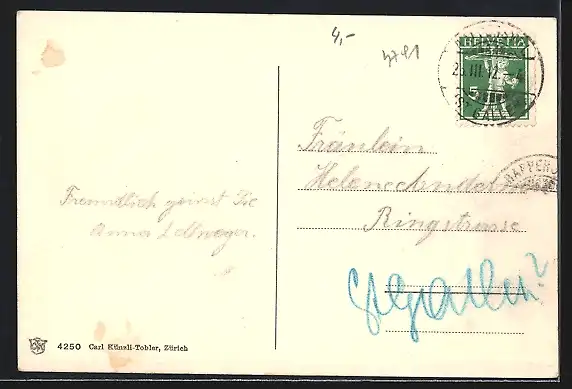 4,-
HELVETIA
5
25.III.12.-4
Fräulein
Helene
Ringstrasse
St. Gallen?
Freundlich grüsst Sie
Anna
RAPPERS
4250 Carl Künzli-Tobler, Zürich